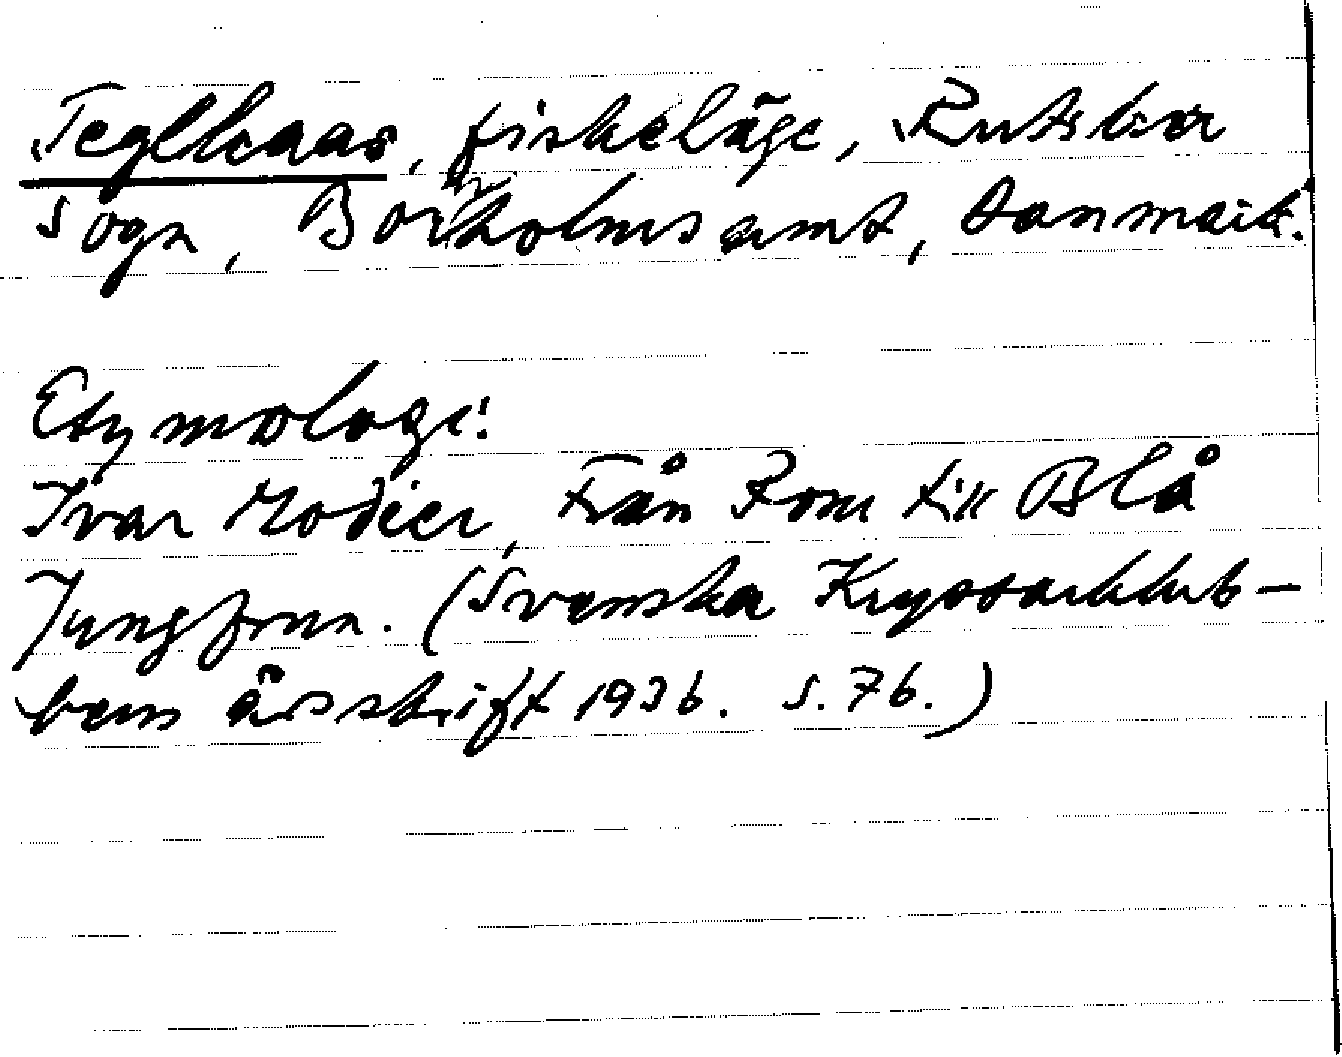 Teglkaas, fiskeläge, Rutsker
Sogn, Bornholms amt, Danmark.
Etymologi:
Ivar Modéer, Från Rom till Blå
Jungfrun. (Svenska Kryssarklub-
bens årsskrift 1936. s. 76.)